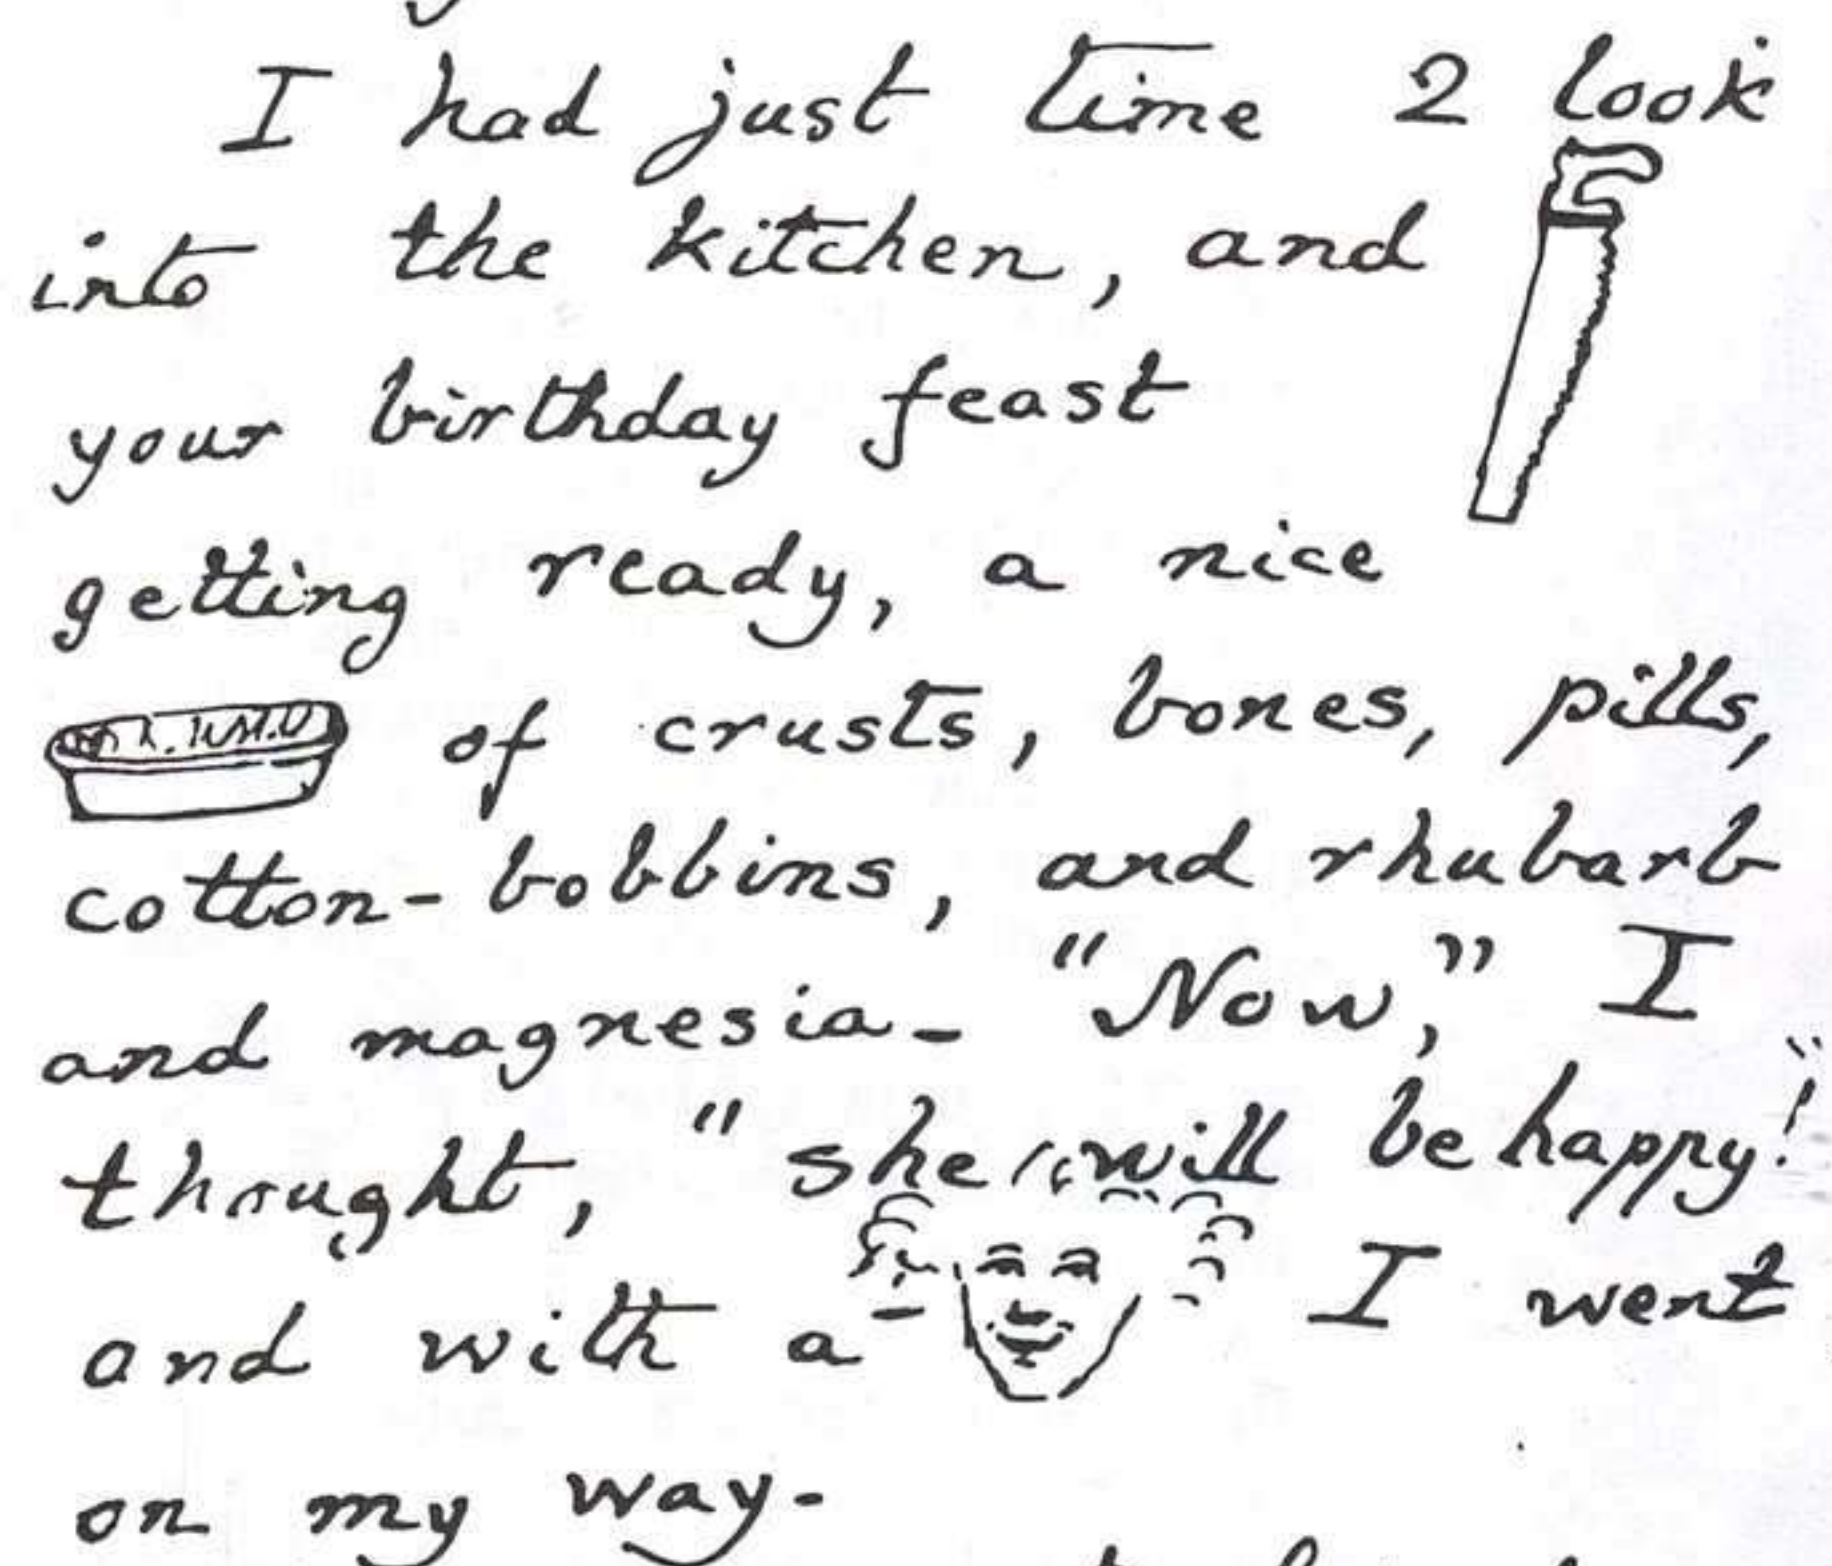 I had just time 2 look
into the kitchen, and
your birthday feast
getting ready, a nice
of crusts, bones, pills,
cotton-bobbins, and rhubarb
and magnesia- "Now," I
thought, "she will be happy!"
and with a I went
on my way-